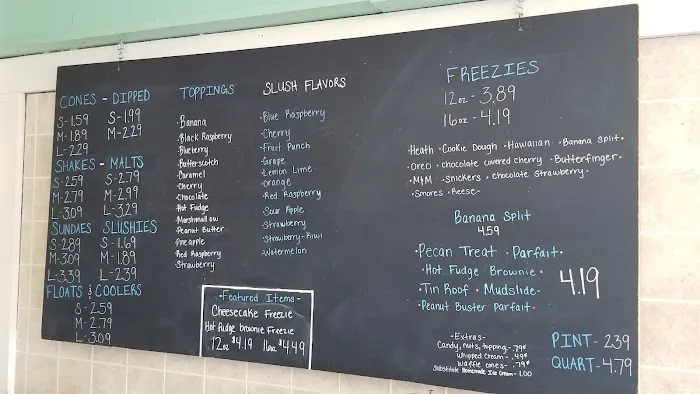 CONES - DIPPED
S-1.59 S-1.99
M-1.89 M-2.29
L-2.29
SHAKES - MALTS
S-2.59 S-2.79
M-2.79 M-2.99
L-3.09 L-3.29
SUNDAES SLUSHIES
S-2.89 S-1.69
M-3.09 M-1.89
L-3.39 L-2.39
FLOATS & COOLERS
S-2.59
M-2.79
L-3.09
TOPPINGS
·Banana
·Black Raspberry
·Blueberry
·Butterscotch
·Caramel
·Cherry
·Chocolate
·Hot Fudge
·Marshmallow
·Peanut Butter
·Pineapple
·Red Raspberry
·Strawberry
SLUSH FLAVORS
·Blue Raspberry
·Cherry
·Fruit Punch
·Grape
·Lemon Lime
·Orange
·Red Raspberry
·Sour Apple
·Strawberry
·Strawberry-Kiwi
·Watermelon
-Featured Items-
Cheesecake Freezie
Hot fudge brownie Freezie
12oz $4.19 16oz $4.49
FREEZIES
12oz - 3.89
16oz - 4.19
·Heath ·Cookie Dough ·Hawaiian ·Banana Split·
·Oreo ·chocolate covered cherry ·Butterfinger·
·M&M ·Snickers ·chocolate Strawberry·
·Smores ·Reese·
Banana Split
4.59
·Pecan Treat ·Parfait·
·Hot Fudge Brownie·
·Tin Roof ·Mudslide·
·Peanut Buster Parfait·
4.19
-Extras-
Candy, nuts, topping - .79¢
Whipped Cream - .49¢
Waffle cones - .79¢
Substitute Homemade Ice Cream - 1.00
PINT - 2.39
QUART - 4.79